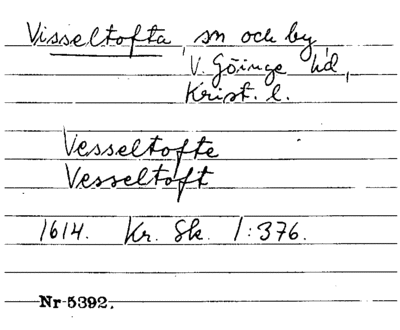 Visseltofta, sn och by,
V. Göinge hd,
Krist. l.
Vesseltofte
Vesseltoft
1614. Kr. Sk. 1:376.
Nr 5392.